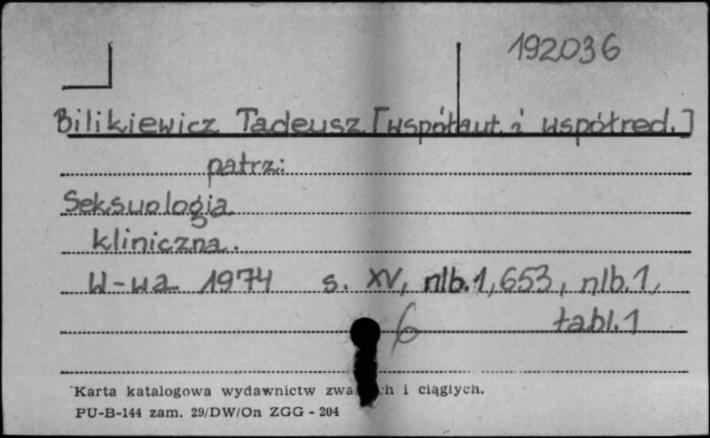 192036
Bilikiewicz Tadeusz [współaut. i współred.]
patrz:
Seksuologia
kliniczna.
W-wa 1974 s. XV, nlb.1, 653, nlb.1,
6 tabl.1
Karta katalogowa wydawnictw zwa ch i ciągłych.
PU-B-144 zam. 29/DW/On ZGG - 204